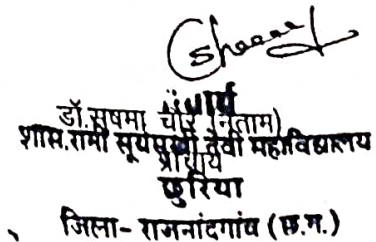 प्राचार्य
डॉ. सुषमा चौरे (नेताम)
शास. रानी सूर्यमुखी देवी महाविद्यालय
प्राचार्य
छुरिया
जिला - राजनांदगांव (छ.ग.)